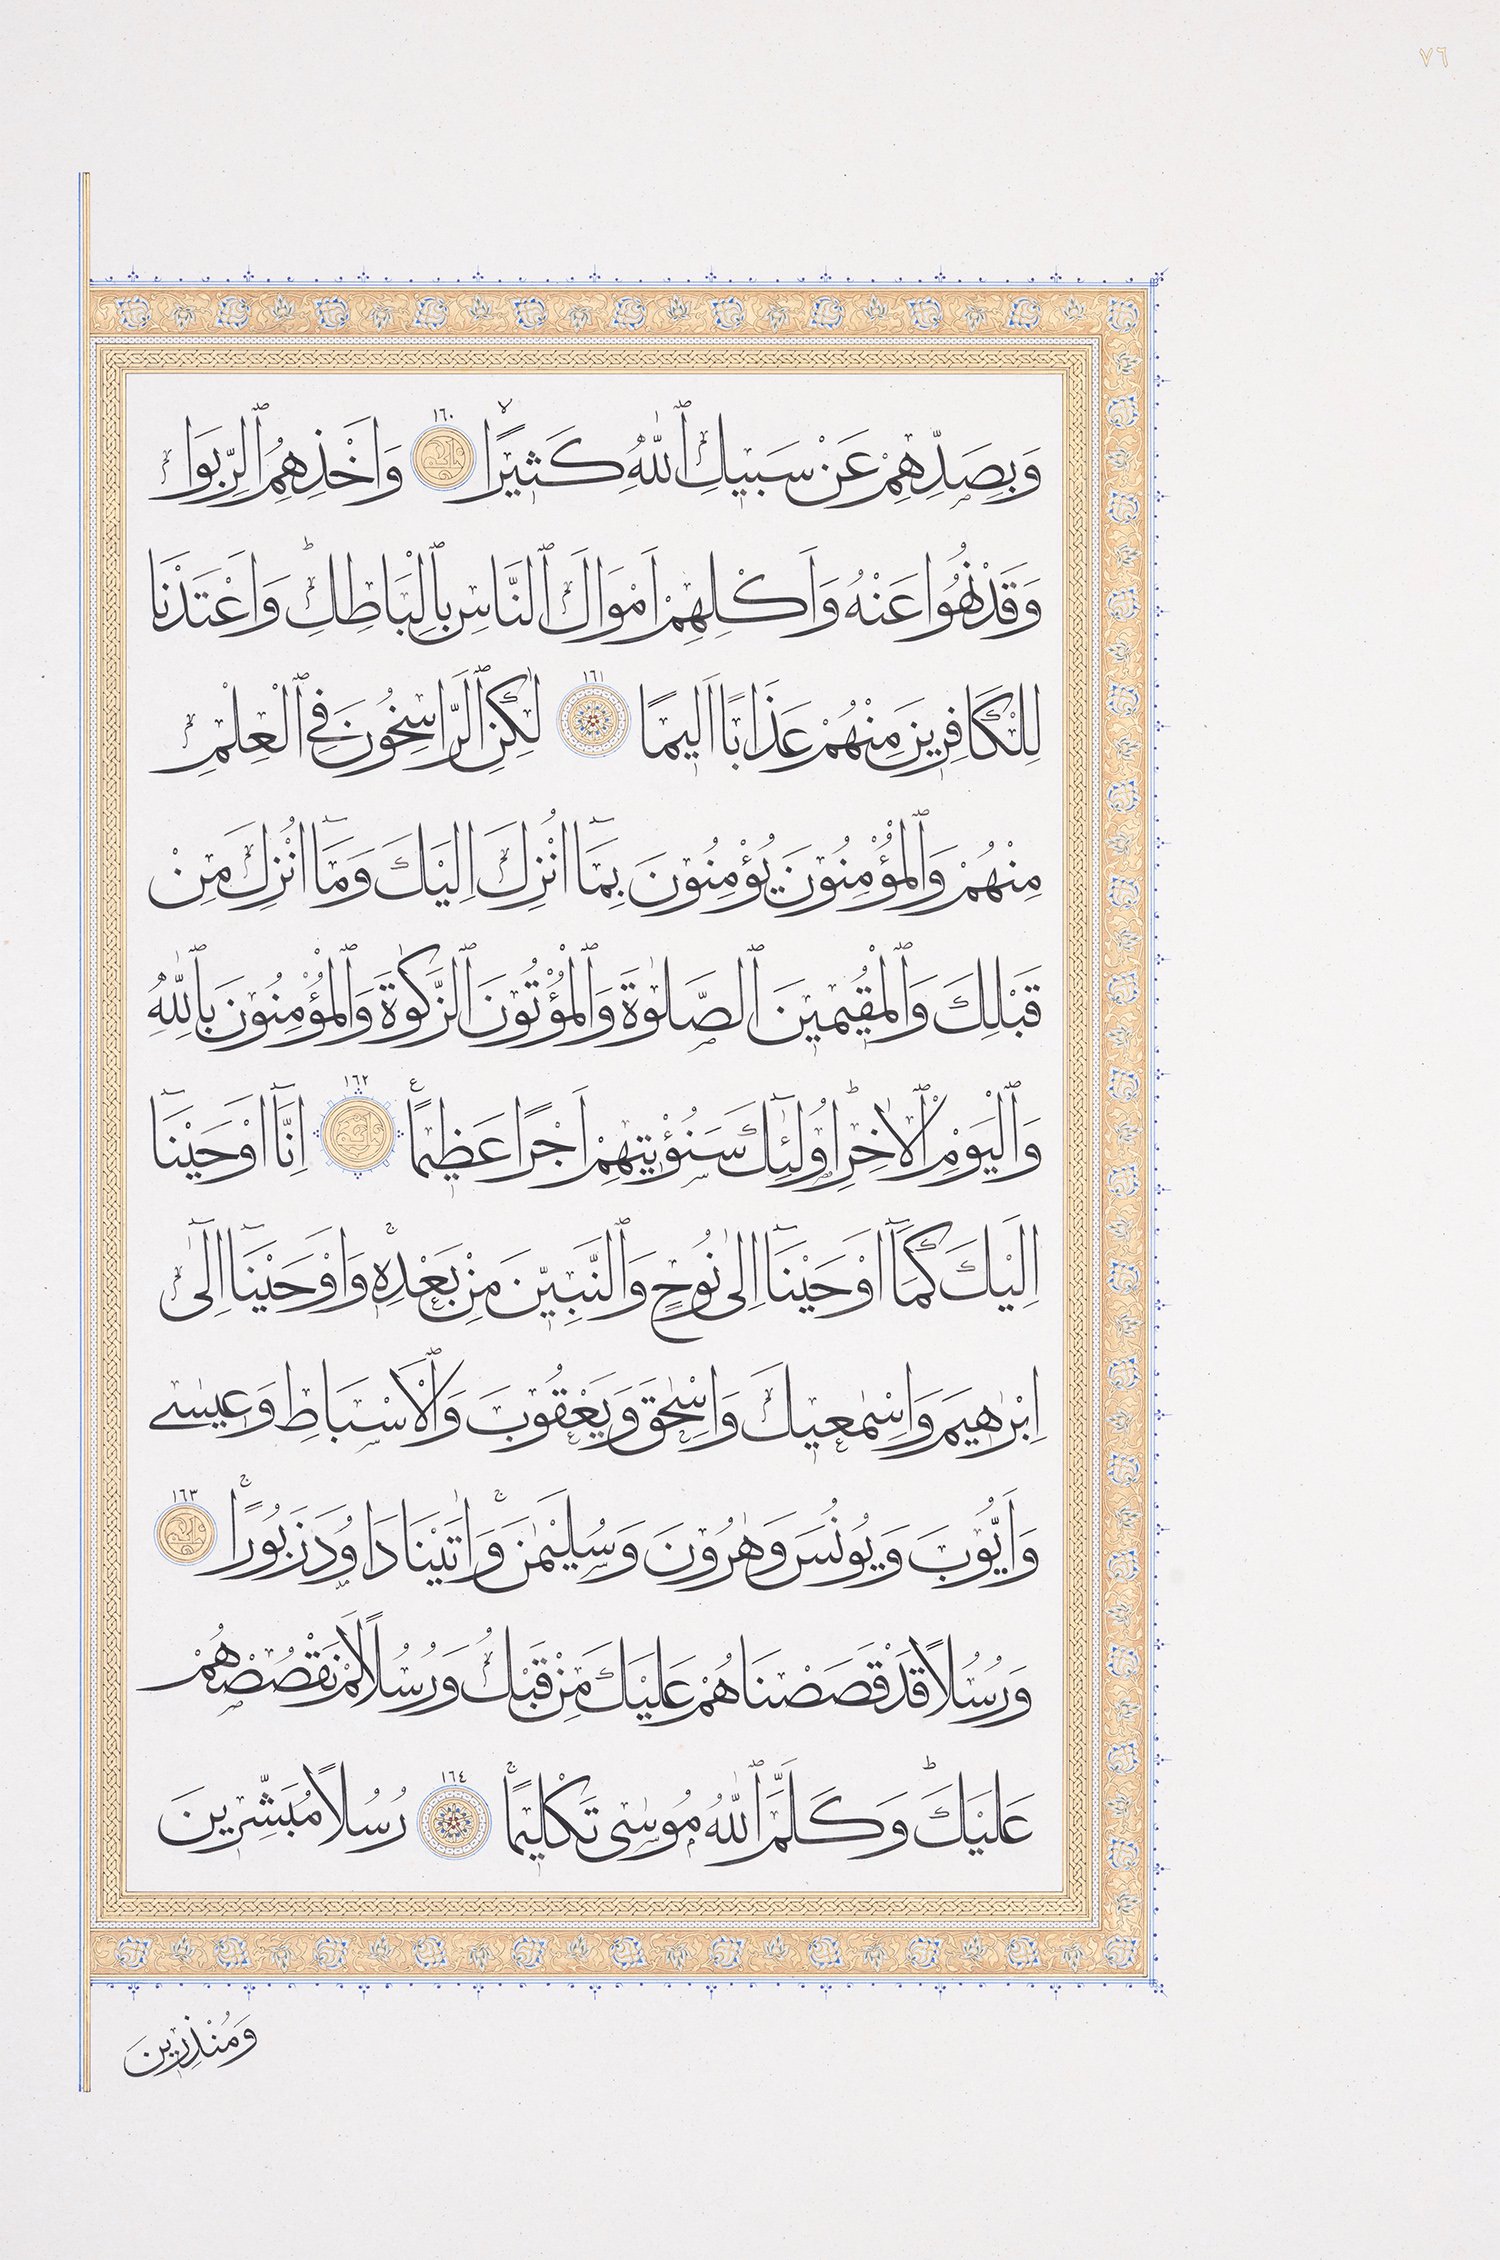 ٧٦
وَبِصَدِّهِمْ عَنْ سَبِيلِ ٱللّٰهِ كَثِيرًاۙ ١٦٠ وَاَخْذِهِمُ ٱلرِّبٰوا
وَقَدْ نُهُوا عَنْهُ وَاَكْلِهِمْ اَمْوَالَ ٱلنَّاسِ بِٱلْبَاطِلِؕ وَاَعْتَدْنَا
لِلْكَافِرِينَ مِنْهُمْ عَذَابًا اَلِيمًا ١٦١ لٰكِنِ ٱلرَّاسِخُونَ فِي ٱلْعِلْمِ
مِنْهُمْ وَٱلْمُؤْمِنُونَ يُؤْمِنُونَ بِمَٓا اُنْزِلَ اِلَيْكَ وَمَٓا اُنْزِلَ مِنْ
قَبْلِكَ وَٱلْمُقِيمِينَ ٱلصَّلٰوةَ وَٱلْمُؤْتُونَ ٱلزَّكٰوةَ وَٱلْمُؤْمِنُونَ بِٱللّٰهِ
وَٱلْيَوْمِ ٱلْاٰخِرِؕ اُولٰٓئِكَ سَنُؤْتِيهِمْ اَجْرًا عَظِيمًاع ١٦٢ اِنَّٓا اَوْحَيْنَٓا
اِلَيْكَ كَمَٓا اَوْحَيْنَٓا اِلٰى نُوحٍ وَٱلنَّبِيِّنَ مِنْ بَعْدِهٖۚ وَاَوْحَيْنَٓا اِلٰٓى
اِبْرٰهِيمَ وَاِسْمٰعِيلَ وَاِسْحٰقَ وَيَعْقُوبَ وَٱلْاَسْبَاطِ وَعِيسٰى
وَاَيُّوبَ وَيُونُسَ وَهٰرُونَ وَسُلَيْمٰنَۚ وَاٰتَيْنَا دَاوُدَ زَبُورًاۚ ١٦٣
وَرُسُلًا قَدْ قَصَصْنَاهُمْ عَلَيْكَ مِنْ قَبْلُ وَرُسُلًا لَمْ نَقْصُصْهُمْ
عَلَيْكَؕ وَكَلَّمَ ٱللّٰهُ مُوسٰى تَكْلِيمًاۚ ١٦٤ رُسُلًا مُبَشِّرِينَ
وَمُنْذِرِينَ